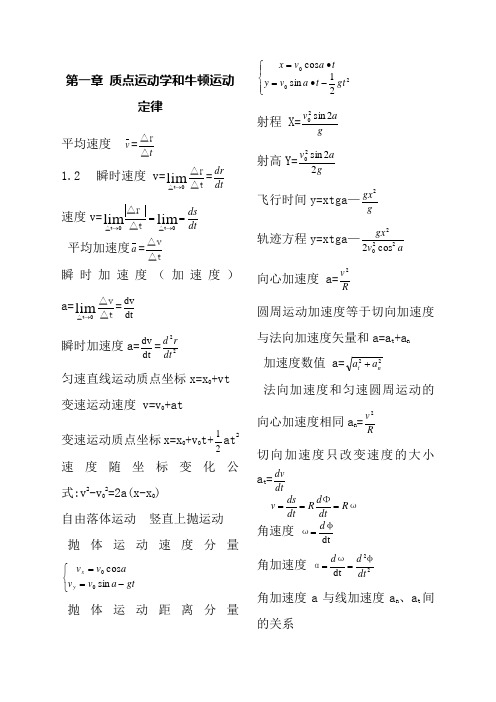 第一章 质点运动学和牛顿运动
定律
平均速度 v̄=△r/△t
1.2 瞬时速度 v=lim(△t→0) △r/△t=dr/dt
速度v=lim(△t→0) |△r|/△t=lim(△t→0)=ds/dt
平均加速度ā=△v/△t
瞬时加速度（加速度）
a=lim(△t→0) △v/△t=dv/dt
瞬时加速度a=dv/dt=d²r/dt²
匀速直线运动质点坐标x=x₀+vt
变速运动速度 v=v₀+at
变速运动质点坐标x=x₀+v₀t+1/2at²
速度随坐标变化公
式:v²-v₀²=2a(x-x₀)
自由落体运动 竖直上抛运动
抛体运动速度分量
{vₓ=v₀cosa
v_y=v₀sina-gt
抛体运动距离分量
{x=v₀cosa•t
y=v₀sina•t-1/2gt²
射程 X=v₀²sin2a/g
射高Y=v₀²sin2a/2g
飞行时间y=xtga—gx²/g
轨迹方程y=xtga—gx²/2v₀²cos²a
向心加速度 a=v²/R
圆周运动加速度等于切向加速度
与法向加速度矢量和a=aₜ+aₙ
加速度数值 a=√(aₜ²+aₙ²)
法向加速度和匀速圆周运动的
向心加速度相同aₙ=v²/R
切向加速度只改变速度的大小
aₜ=dv/dt
v=ds/dt=R dΦ/dt=Rω
角速度 ω=dφ/dt
角加速度 α=dω/dt=d²φ/dt²
角加速度a与线加速度aₙ、aₜ间
的关系